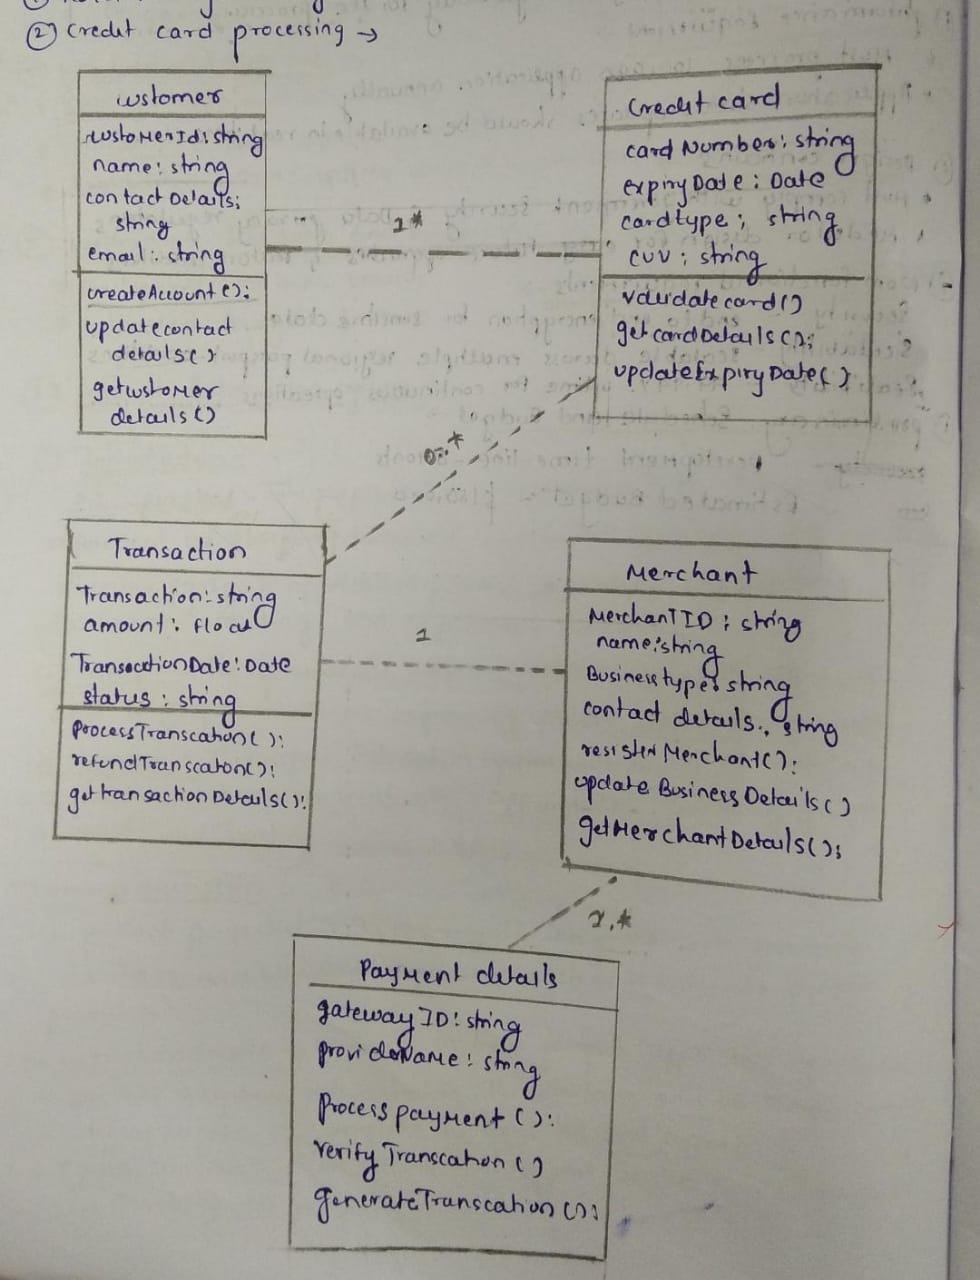 ② Credit card processing →
customer
customerId: string
name: string
contact Details;
string
email: string
createAccount();
updatecontact
details()
getcustomer
details()
1*
Credit card
card Number: string
expiryDate: Date
cardtype; string
CVV: string
validate card()
get card Details();
updateExpiryDate()
0..*
Transaction
Transaction: string
amount: float
TransactionDate: Date
status: string
processTranscation():
refundTranscaton():
get transaction Details():
1
Merchant
MerchantID: string
name: string
Business type: string
contact details.; string
Merchant():
update Business Details()
getMerchantDetails();
1.*
Payment details
gatewayID: string
string
Process payment():
verify Transcation()
generateTranscation();